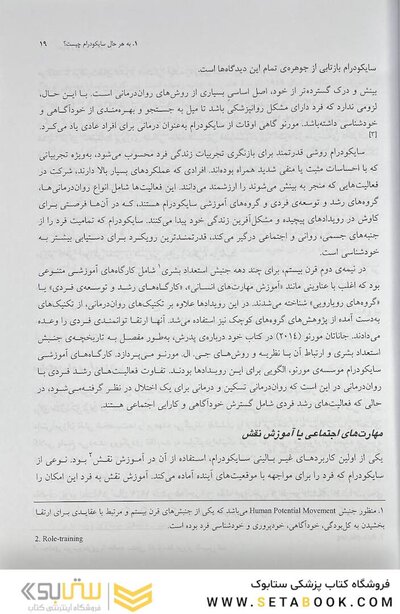 ۱. به هر حال سایکودرام چیست؟ ۱۹
سایکودرام بازتابی از جوهره‌ی تمام این دیدگاه‌ها است.
بینش و درک گسترده‌تر از خود، اصل اساسی بسیاری از روش‌های روان‌درمانی است. با این حال،
لزومی ندارد که فرد دارای مشکل روانپزشکی باشد تا میل به جستجو و بهره‌مندی از خودآگاهی و
خودشناسی داشته‌باشد. مورنو گاهی اوقات از سایکودرام به‌عنوان درمانی برای افراد عادی یاد می‌کرد.
[۲]
سایکودرام روشی قدرتمند برای بازنگری تجربیات زندگی فرد محسوب می‌شود، به‌ویژه تجربیاتی
که با احساسات مثبت یا منفی شدید همراه بوده‌اند. افرادی که عملکردهای بسیار بالا دارند، شرکت در
فعالیت‌هایی که منجر به بینش می‌شوند را ارزشمند می‌دانند. این فعالیت‌ها شامل انواع روان‌درمانی‌ها،
گروه‌های رشد و توسعه‌ی فردی و گروه‌های آموزشی سایکودرام هستند، که در آن‌ها فرصتی برای
کاوش در رویدادهای پیچیده و مشکل‌آفرین زندگی خود پیدا می‌کنند. سایکودرام که تمامیت فرد را از
جنبه‌های جسمی، روانی و اجتماعی درگیر می‌کند، قدرتمندترین رویکرد برای دستیابی بیشتر به
خودشناسی است.
در نیمه‌ی دوم قرن بیستم، برای چند دهه جنبش استعداد بشری۱ شامل کارگاه‌های آموزشی متنوعی
بود که اغلب با عناوینی مانند «آموزش مهارت‌های انسانی»، «کارگاه‌های رشد و توسعه‌ی فردی» یا
«گروه‌های رویارویی» شناخته می‌شدند. در این رویدادها علاوه بر تکنیک‌های روان‌درمانی، از تکنیک‌های
به‌دست آمده از پژوهش‌های گروه‌های کوچک نیز استفاده می‌شد. آنها ارتقا توانمندی فردی را وعده
می‌دادند. جاناتان مورنو (۲۰۱۴) در کتاب خود درباره‌ی پدرش، به‌طور مفصل به تاریخچه‌ی جنبش
استعداد بشری و ارتباط آن با نظریه و روش‌های جی. ال. مورنو می‌پردازد. کارگاه‌های آموزشی
سایکودرام موسسه‌ی مورنو، الگویی برای این رویدادها بودند. تفاوت فعالیت‌های رشد فردی با
روان‌درمانی در این است که روان‌درمانی تسکین و درمانی برای یک اختلال در نظر گرفته‌می‌شود، در
حالی که فعالیت‌های رشد فردی شامل گسترش خودآگاهی و کارایی اجتماعی هستند.
مهارت‌های اجتماعی یا آموزش نقش
یکی از اولین کاربردهای غیر بالینی سایکودرام، استفاده از آن در آموزش نقش۲ بود. نوعی از
سایکودرام که فرد را برای مواجهه با موقعیت‌های آینده آماده می‌کند. آموزش نقش به فرد این امکان را
۱. منظور جنبش Human Potential Movement می‌باشد که یکی از جنبش‌های قرن بیستم و مرتبط با عقایدی برای ارتقا
بخشیدن به کل‌بودگی، خودآگاهی، خودپروری و خودشناسی فرد بوده است.
2. Role-training
فروشگاه کتاب پزشکی ستابوک
WWW.SETABOOK.COM
ستابوک
فروشگاه اینترنتی کتاب